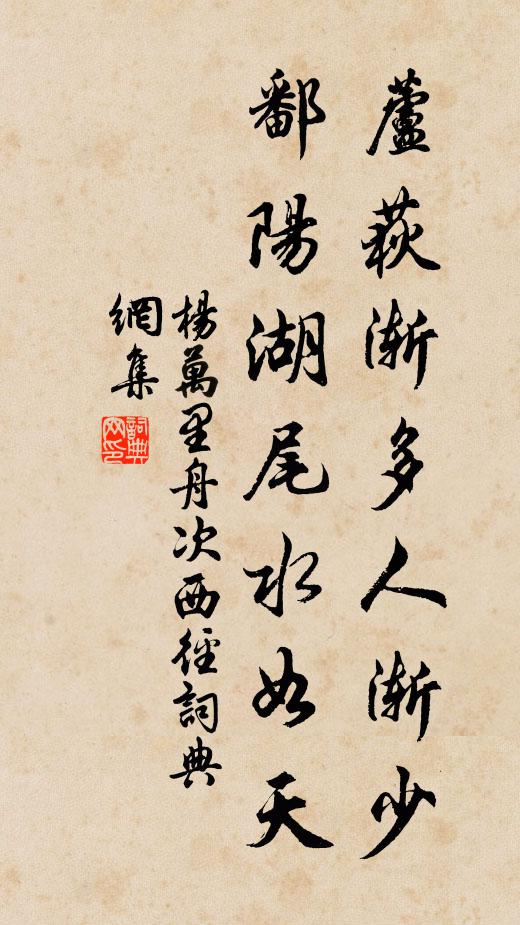 蘆荻漸多人漸少
鄱陽湖尾水如天
楊萬里舟次西徑詞典
網集
詞典
网印